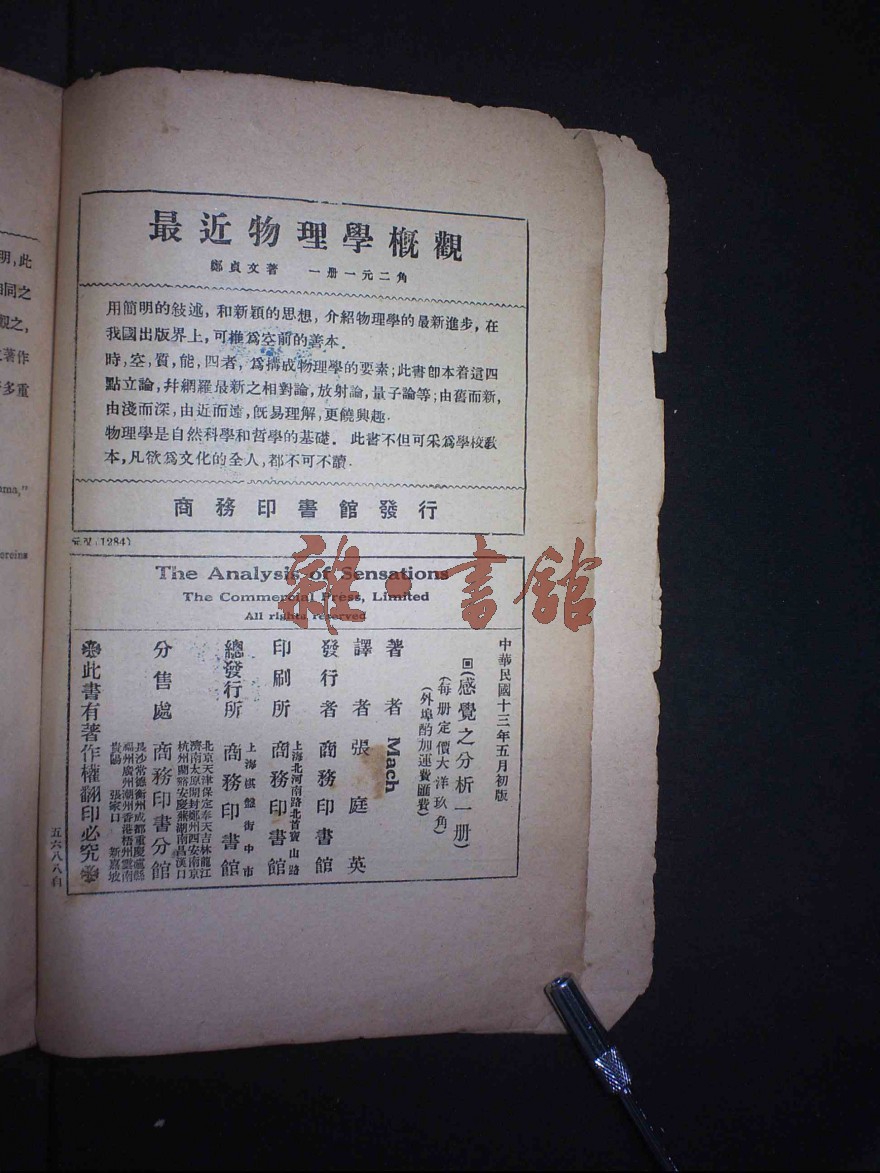 最近物理學概觀
鄭貞文著　一册一元二角
用簡明的敍述，和新穎的思想，介紹物理學的最新進步，在
我國出版界上，可推爲空前的善本．
時，空，質，能，四者，爲構成物理學的要素；此書卽本着這四
點立論，幷網羅最新之相對論，放射論，量子論等；由舊而新，
由淺而深，由近而遠，旣易理解，更饒興趣．
物理學是自然科學和哲學的基礎．此書不但可采爲學校敎
本，凡欲爲文化的全人，都不可不讀．
商務印書館發行
(1284)
The Analysis of Sensations
The Commercial Press, Limited
All rights reserved
中華民國十三年五月初版
回(感覺之分析一册)
(每册定價大洋玖角)
(外埠酌加運費匯費)
著者 Mach
譯者 張庭英
發行者 商務印書館
上海北河南路北首寶山路
印刷所 商務印書館
上海棋盤街中市
總發行所 商務印書館
北京天津保定奉天吉林龍江
濟南太原開封鄭州西安南京
杭州蘭谿安慶蕪湖南昌漢口
分售處 商務印書分館
長沙常德衡州成都重慶瀘縣
福州廣州潮州香港梧州雲南
貴陽 張家口 新嘉坡
此書有著作權翻印必究
五六八八自
明，此
相同之
觀之，
著作
多重
ama,"
ereins
雜·書館